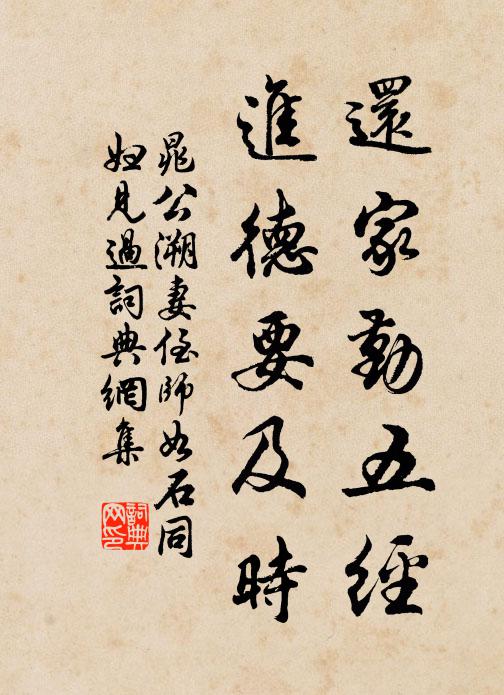 還家勤五經
進德要及時
晁公溯妻侄師如石同
妞見過詞典網集
詞典
网印